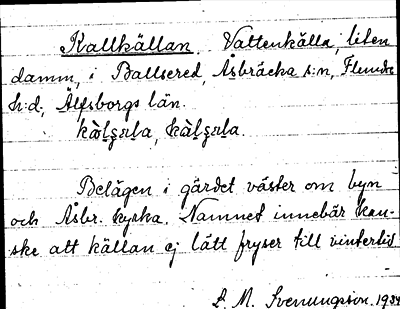 Kallkällan. Vattenkälla, liten
damm, i Ballsered, Åsbräcka s:n, Flundre
h:d, Älfsborgs län.
Belägen i gärdet väster om byn
och Åsbr. kyrka. Namnet innebär kan-
ske att källan ej lätt fryser till vintertid
M. Svenungsson. 1934